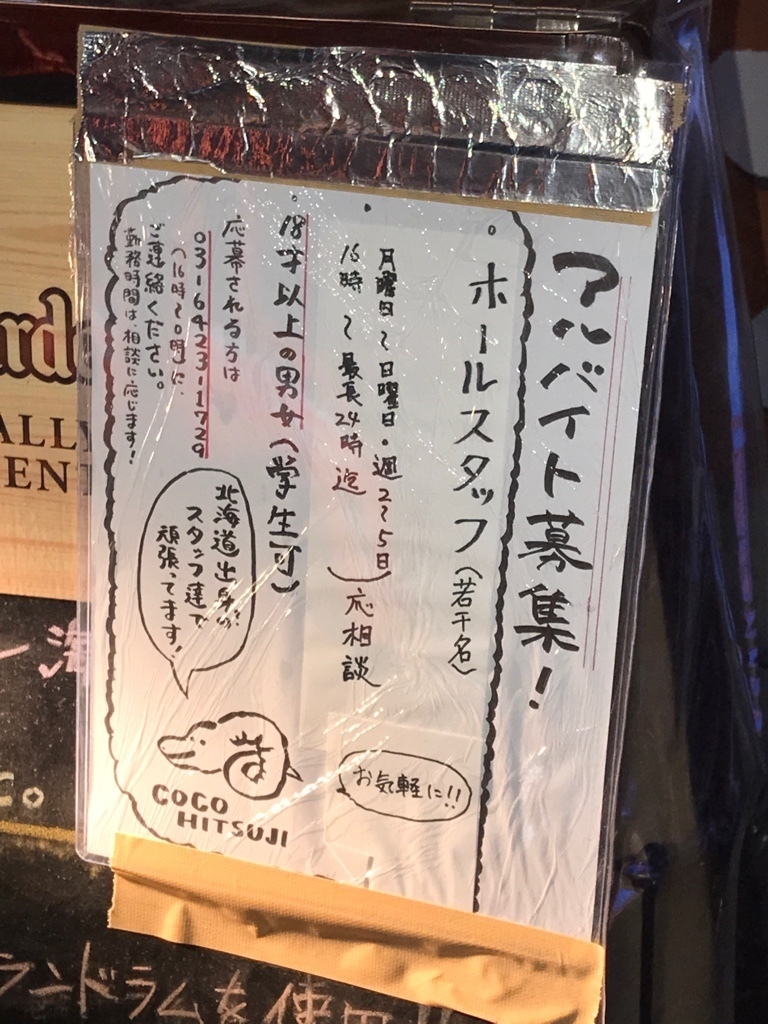 アルバイト募集!
・ホールスタッフ(若干名)
月曜日〜日曜日・週2〜5日
16時〜最長24時迄
応相談
・18才以上の男女(学生可)
応募される方は
03-6423-1729
(16時〜0時)に
ご連絡ください。
勤務時間は、相談に応じます!
北海道出身の
スタッフ達で
頑張ってます!
お気軽に!!
COCO
HITSUJI
ALLY
ENT
ランドラムを使用!!